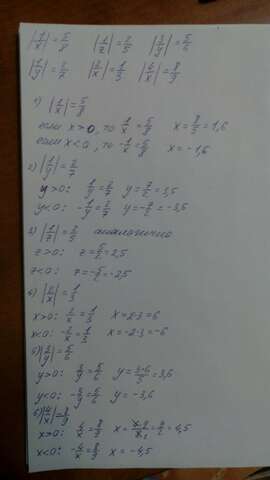 |1/x| = 5/8 |1/z| = 2/5 |3/y| = 5/6
|1/y| = 2/7 |2/x| = 1/3 |4/x| = 8/9
1) |1/x| = 5/8
если x>0, то 1/x = 5/8 x = 8/5 = 1,6
если x<0, то -1/x = 5/8 x = -1,6
2) |1/y| = 2/7
y>0: 1/y = 2/7 y = 7/2 = 3,5
y<0: -1/y = 2/7 y = -7/2 = -3,5
3) |1/z| = 2/5 аналогично
z>0: z = 5/2 = 2,5
z<0: z = -5/2 = -2,5
4) |2/x| = 1/3
x>0: 2/x = 1/3 x = 2·3 = 6
x<0: -2/x = 1/3 x = -2·3 = -6
5) |3/y| = 5/6
y>0: 3/y = 5/6 y = 3·6/5 = 3,6
y<0: -3/y = 5/6 y = -3,6
6) |4/x| = 8/9
x>0: 4/x = 8/9 x = 4·9/8 = 9/2 = 4,5
x<0: -4/x = 8/9 x = -4,5